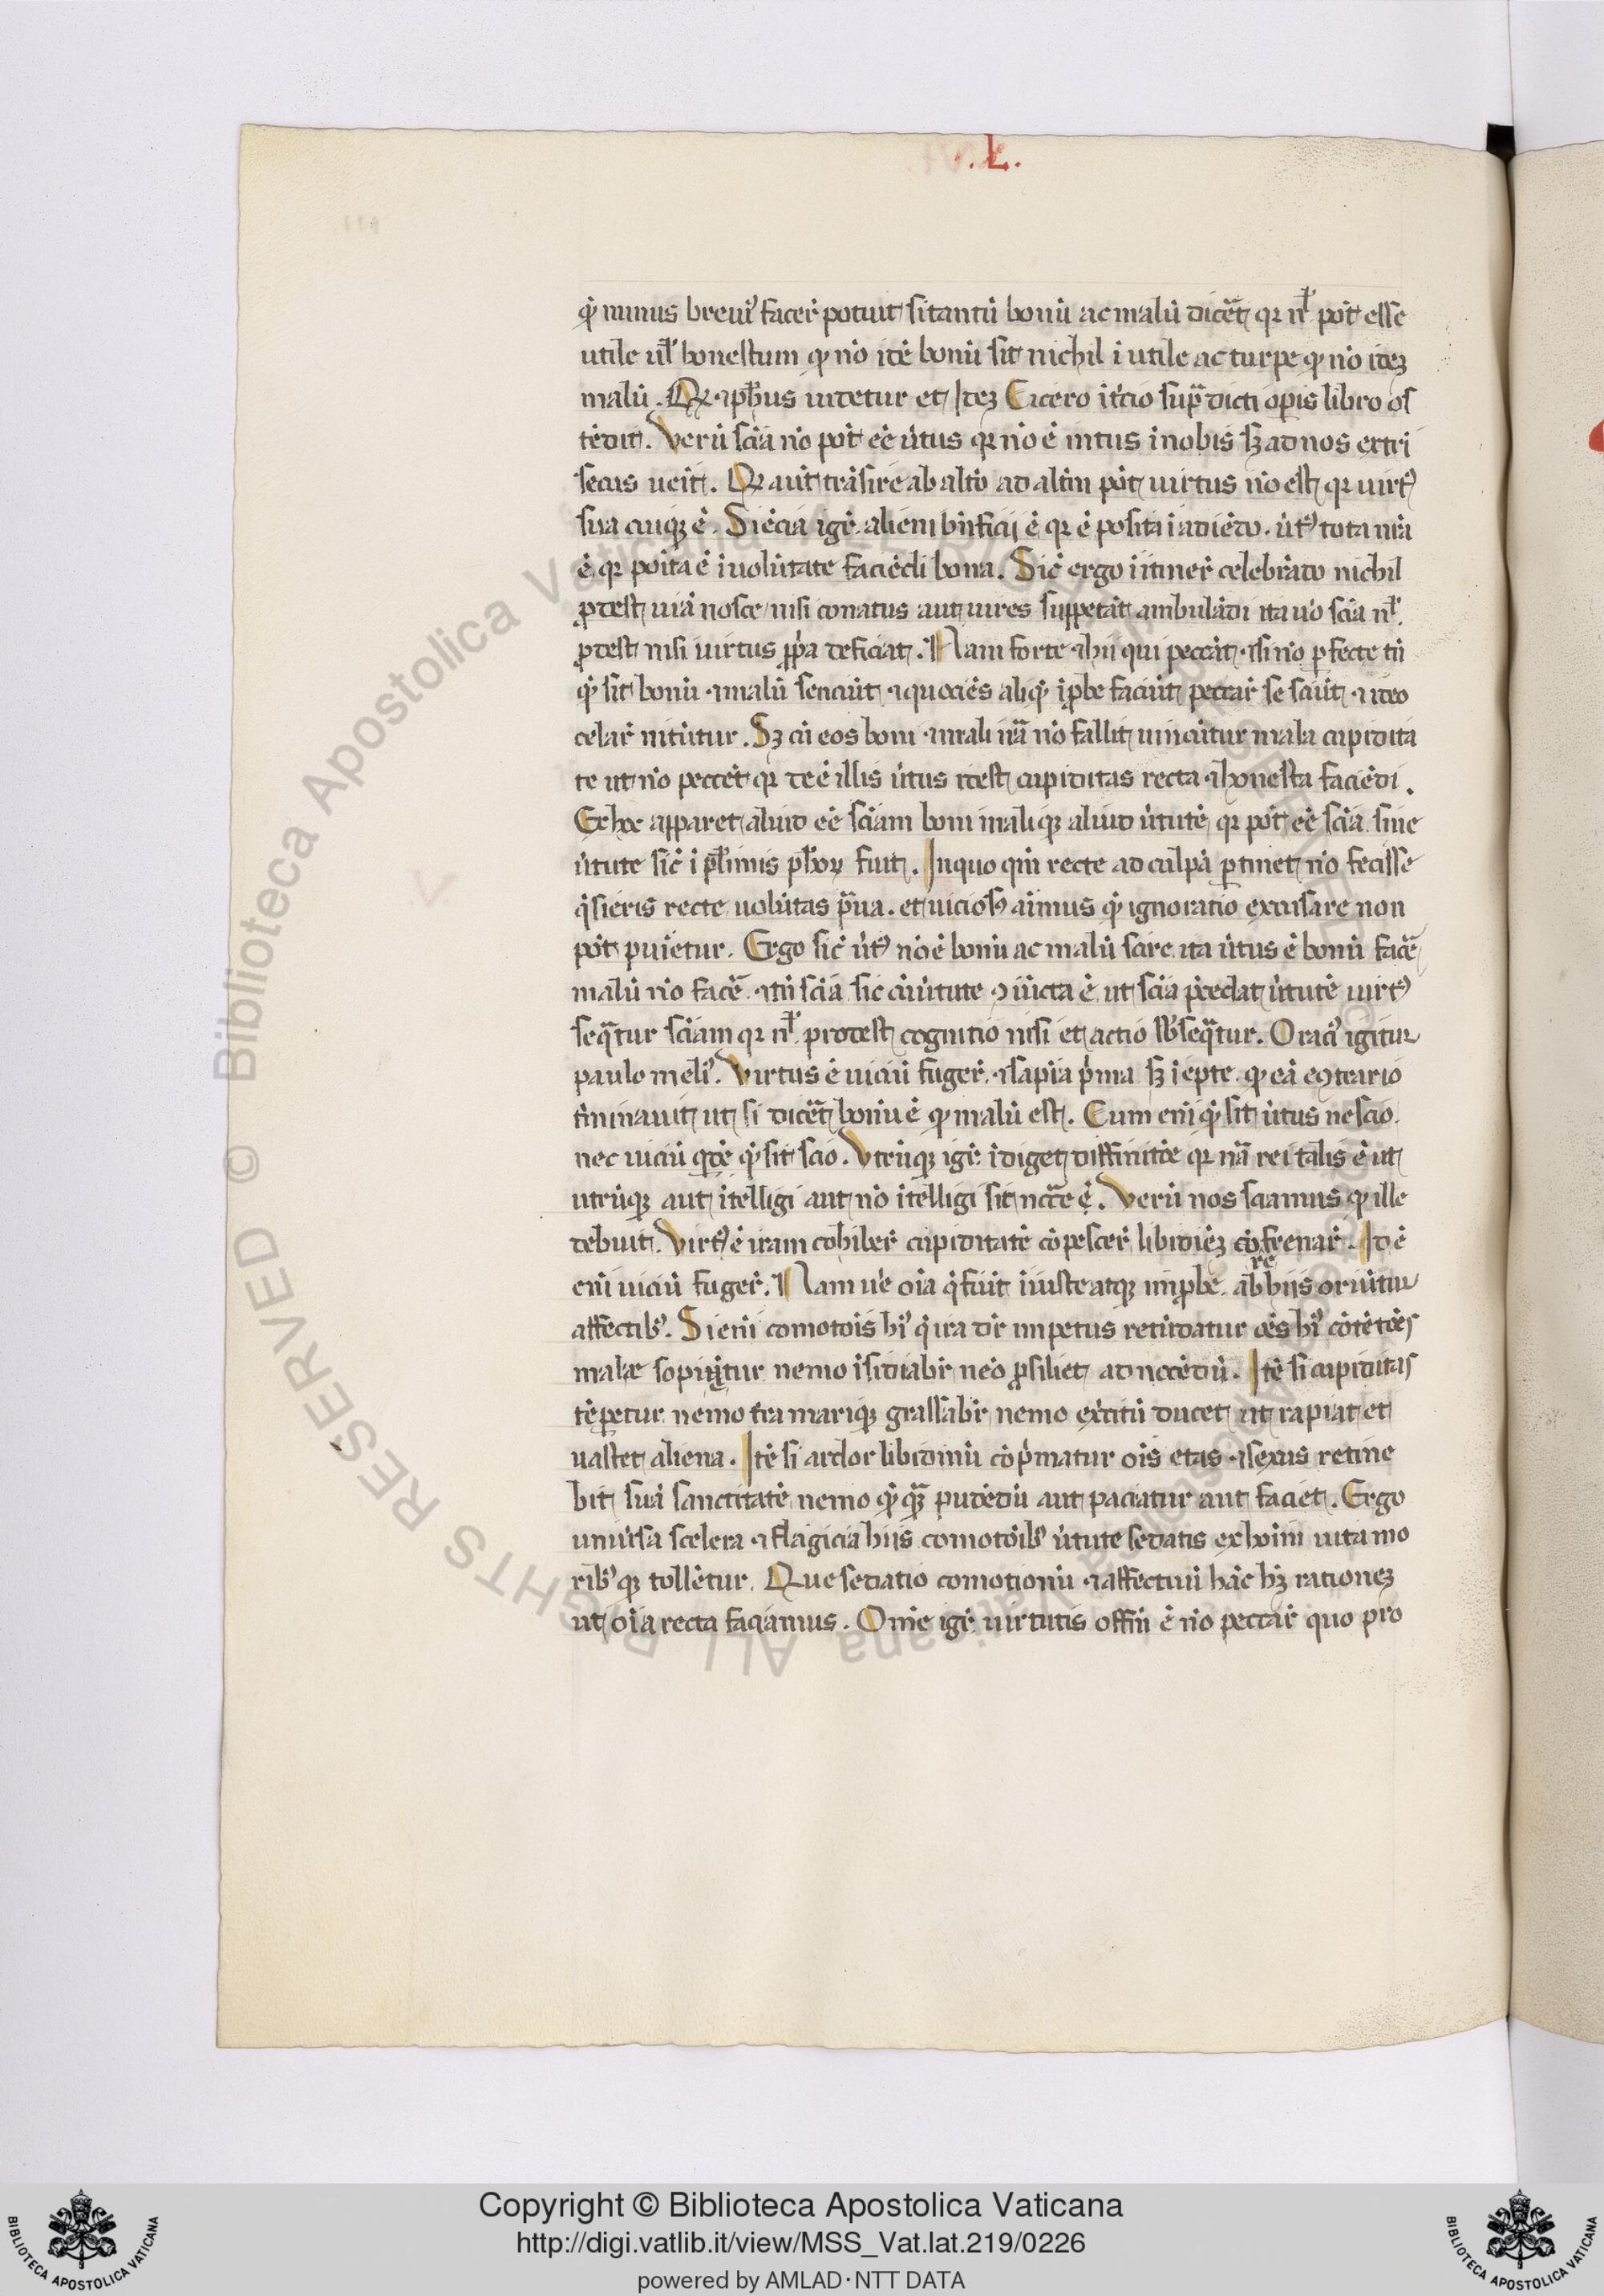 .L.
ꝙ minus breui᾽ facer̄ potuit si tantū bonū ac malū dicēt qꝛ nl̄ pōt esse
utile ul̄ honestum qꝫ nō itē bonū sit nichil ī utile ac turpe qꝫ nō ideꝫ
malū . Qꝫ ⁊ ph̄us uidetur et ideꝫ Cicero ī t̄cio sup̄dicti opis libro os
tēdit. Verū sciā nō pōt eē ūtus qꝛ nō ē intus ī nobis sꝫ ad nos extri
secus ueīt. Qꝫ aūt trāsire ab alto̅ ad altm̄ pōt uirtus nō est qꝛ uirt᾽
sua cuiqꝫ ē . Sciēcia igr̄ alieni bn̄ficij ē qꝛ ē posita ī adiēdo . ūt᾽ tota nr̄a
ē qꝛ poīta ē ī uolūtate faciēdi bona. Sic̄ ergo ī itiner̄ celebrādo nichil
ꝓdest uiā nosce nisi conatus aut uires suppetāt ambulādi ita uo̅ sciā nl̄
ꝓdest nisi uirtus ꝓp̄a deficiat. Nam forte ⁊ hii qui peccāt ⁊ si nō ꝑfecte tn̄
qꝫ sit bonū ⁊ malū senciūt ⁊ quociēs aliqꝫ īꝓbe faciūt peccar̄ se sciūt ⁊ ideo
celar̄ nitūtur. Sꝫ cū eos boni ⁊ mali nā nō fallit uincūtur mala cupidita
te ut nō peccēt qꝛ deē illis ūtus idest cupiditas recta ⁊ honesta faciēdi.
Ex hoc apparet aliud eē sciam boni maliqꝫ aliud ūtutē qꝛ pōt eē sciā sine
ūtute sic̄ ī pl̄imis ph̄oꝝ fuit. In quo qm̄ recte ad culpā ꝑtinet nō fecisse
q̄ scieris recte uolūtas p̄ua . et uiciosꝰ aīmus qꝫ ignoratio excusare non
pōt puīetur. Ergo sic̄ ūt᾽ nō ē bonū ac malū scire ita ūtus ē bonū facē
malū nō facē . ⁊ tn̄ sciā sic cū ūtute ꝯiūcta ē ut sciā p̄cedat ūtutē uirt᾽
seq̄tur sciam qꝛ nl̄ prodest cognitio nisi et actio sb̄seq̄tur. Oraci᾽ igitur
paulo meli᾽. Virtus ē uiciū fuger̄ ⁊ sapīa p̄ma sꝫ īepte qꝫ eā eꝯtrario
t̄minauit ut si dicēt bonū ē qꝫ malū est. Cum eni qꝫ sit ūtus nescio.
nec uiciū qꝫdē qꝫ sit scio. Vtrūqꝫ igr̄ īdiget diffinitōe qꝛ nā rei talis ē ut
utrūqꝫ aut ītelligi aut nō ītelligi sit ncc̄e ē. Verū nos sciamus qꝫ ille
debuit. Virt᾽ ē iram cohiber̄ cupiditatē cōpescer̄ libidiēꝫ cōfrenar̄ . Id ē
eni uiciū fuger̄. Nam ue̅ oīa q̄ fiūt īiuste atqꝫ imꝓbe ab hiis oriūtur
re
affectib᾽. Si eni comotōis hi᾽ q̄ ira dr̄ impetus retūdatur oēs hi᾽ cōtētōes
malæ sopiūtur nemo īsidiabr̄ neo̅ ꝓsiliet ad nocēdū. Itē si cupiditas
tēꝑetur nemo t̄ra mariqꝫ grassabr̄ nemo ex̄citū ducet ut rapiat et
uastet aliena . Itē si ardor libidinū cōp̄matur oīs etas ⁊ sexus retine
bit suā sanctitatē nemo qꝫqꝫ pudēdū aut paciatur aut faciet. Ergo
uniūsa scelera ⁊ flagicia hiis comotōib᾽ ūtute sedatis ex hoīm uita mo
rib᾽qꝫ tollētur. Que sedatio comotionū ⁊ affectuū hāc hꝫ rationeꝫ
ut oīa recta faciamus . Om̄e igr̄ uirtutis offm̄ ē nō peccar̄ quo pro
Copyright © Biblioteca Apostolica Vaticana
http://digi.vatlib.it/view/MSS_Vat.lat.219/0226
powered by AMLAD·NTT DATA